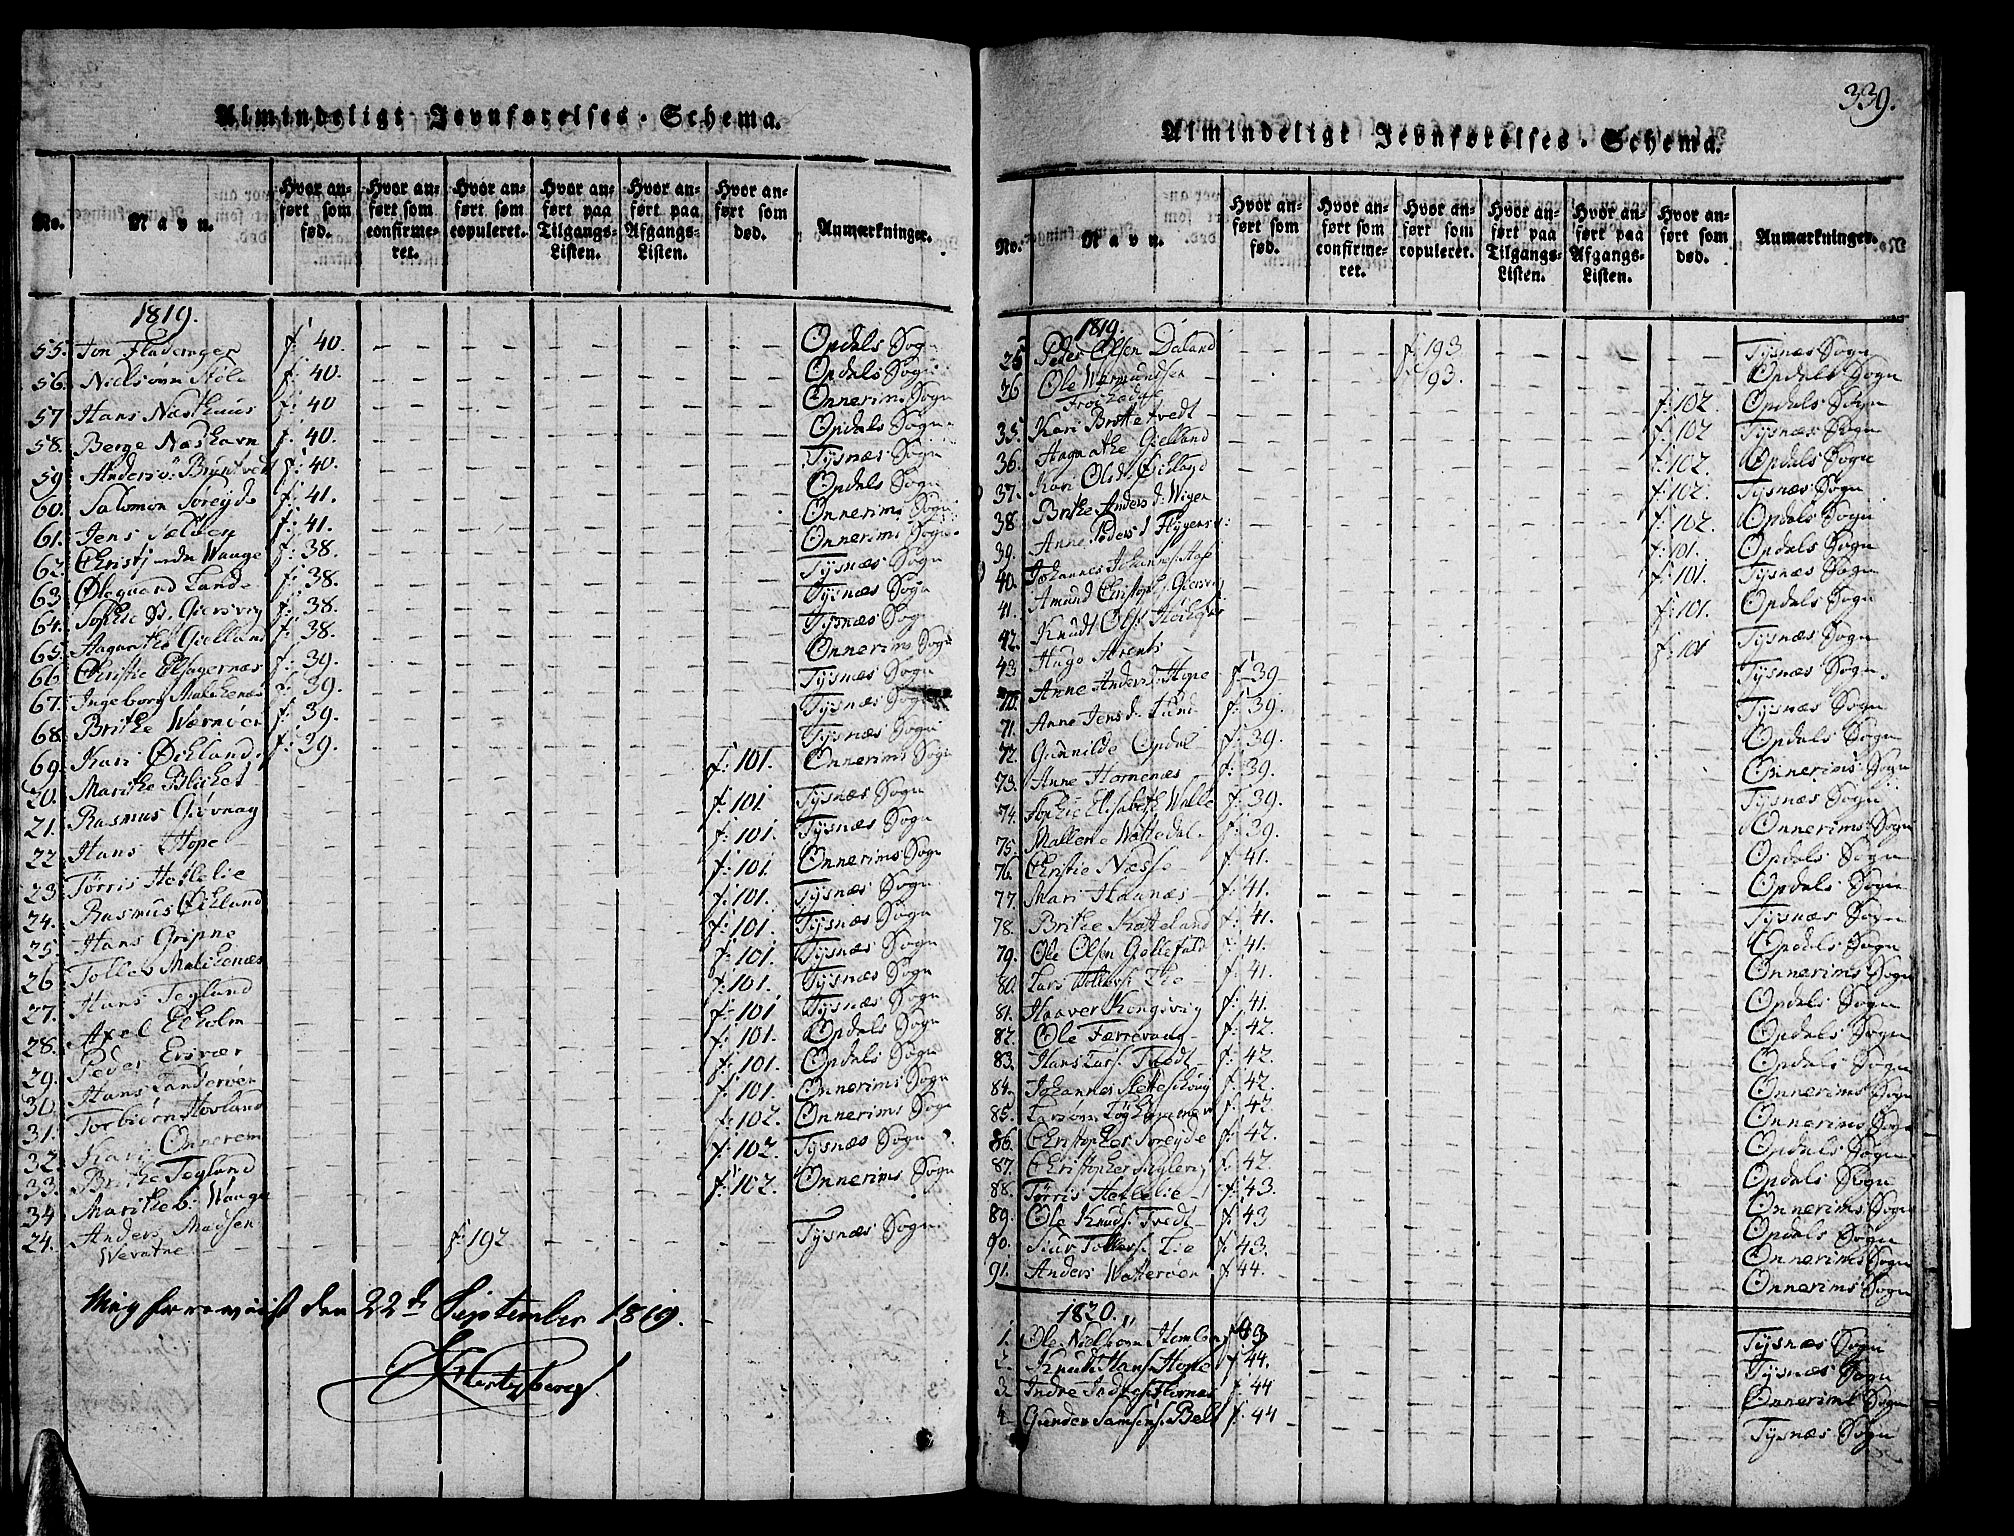 Almindeligt Jevnførelses-Schema.
No.
Navn.
Hvor anført som fød.
Hvor anført som confirmeret.
Hvor anført som copuleret.
Hvor anført paa Tilgangs-Listen.
Hvor anført paa Afgangs-Listen.
Hvor anført som død.
Anmærkninger.
1819.
55. Jon Fladeager f: 40. Opdals Sogn
56. f: 40. Opdals Sogn
57 Hans Næsthuus f: 40 Onnerims Sogn
58. Berge Næshavn f: 40. Opdals Sogn
59 f: 40. Tysnæs Sogn
60. Salomon Soreyde f: 41. Opdals Sogn
61. Jens f: 41. Onnerims Sogn
62. Waage f: 38. Onnerims Sogn.
63. Lande f: 38. Tysnæs Sogn
64. Giersvig f: 38. Tysnæs Sogn
65. Aagaathe Gielland f: 38. Tysnæs Sogn
66. Christie f: 39. Onnerims Sogn
67. Ingeborg Malchenæs f: 39. Tysnæs Sogn
68. Brithe Wærnøen f: 39. Tysnæs Sogn
69. Kari Øieland f: 39. Tysnæs Sogn
20. Marithe f: 101. Onnerims Sogn
21. Rasmus Giøvaag f: 101. Tysnæs Sogn
22. Hans Hope f: 101. Tysnæs Sogn
23. Tørris Hellelie f: 101. Onnerims Sogn
24. Rasmus Øieland f: 101. Tysnæs Sogn
25. Hans Gripne f: 101. Tysnæs Sogn
26. Tolles Malchenæs f: 101. Tysnæs Sogn
27. Hans Tegland f: 101. Tysnæs Sogn
28. Axel Ekholm f: 101 Tysnæs Sogn
29. Peder Ersvær f: 101. Opdals Sogn
30. Hans Landerøen f: 101. Opdals Sogn
31. Torbiørn Hovland f: 101. Onnerims Sogn
32. Kari Onnerem f: 102. Onnerims Sogn
33. Brithe Tegland f: 102. Tysnæs Sogn
34. Marithe Waage f: 102. Onnerims Sogn
24. Anders Madsen
Wevatne f: 192 Tysnæs Sogn
foreviist den 22de September 1819.
Hertzberg
339.
Almindeligt Jevnførelses-Schema.
No.
Navn.
Hvor anført som fød.
Hvor anført som confirmeret.
Hvor anført som copuleret.
Hvor anført paa Tilgangs-Listen.
Hvor anført paa Afgangs-Listen.
Hvor anført som død.
Anmærkninger.
1819.
25 Peder Olsen Daland f: 193. Tysnæs Sogn
26 Ole Wermundsen f: 193. Opdals Sogn
35. Kari Brattetvedt f: 102. Opdals Sogn
36. Aagaathe Gielland f: 102 Tysnæs Sogn
37. Kari Olsd. Øieland f: 102. Opdals Sogn
38. Brithe Anders d: f: 102. Tysnæs Sogn
39. Anne Peders d f: 102. Opdals Sogn
40. Johannes Johannes. f: 101. Opdals Sogn
41. Amund Christoph. Giersvig f: 101. Tysnæs Sogn
42. Knudt Ols. f: 101. Opdals Sogn
43 Hugo Arents f: 101 Tysnæs Sogn
70. Anne Andersd. Hope f: 39. Tysnæs Sogn.
71. Anne Jens d. Lund f: 39. Tysnæs Sogn
72. Gunnilde Opdal f: 39. Opdals Sogn
73. Anne Hornenæs f: 39. Onnerims Sogn
74. Sophie Elisabeth Walle f: 39. Tysnæs Sogn
75. Mallene Wattedal f: 39. Onnerims Sogn
76. Christie Næsse f: 41. Opdals Sogn
77. Mari Haanæs f: 41. Opdals Sogn
78. Brithe Katteland f: 41. Tysnæs Sogn
79. Ole Olsen f: 41. Opdals Sogn
80. Lars Tolless. Lie f: 41. Onnerims Sogn
81. Haaver Kongsvig f: 41. Opdals Sogn
82. Ole Færrevaag f: 42. Opdals Sogn
83. Hans Lars. Tvedt f: 42. Opdals Sogn
84. Johannes f: 42. Onnerims Sogn
85. f: 42. Onnerims Sogn
86. Christopher Soreyde f: 42. Opdals Sogn
87. Christopher f: 42. Opdals Sogn
88. Tørris Hellelie f: 43. Onnerims Sogn
89. Ole Knuds. Tvedt f: 43 Opdals Sogn
90. Siur Tolless. Lie f: 43. Onnerims Sogn
91. Anders Watterøen f: 44. Onnerims Sogn
1820.
1. Ole 43 Tysnæs Sogn
2. Knudt Hans. Hope f: 44. Tysnæs Sogn
3. Indre f: 44 Onnerims Sogn
4. f: 44 Tysnæs Sogn